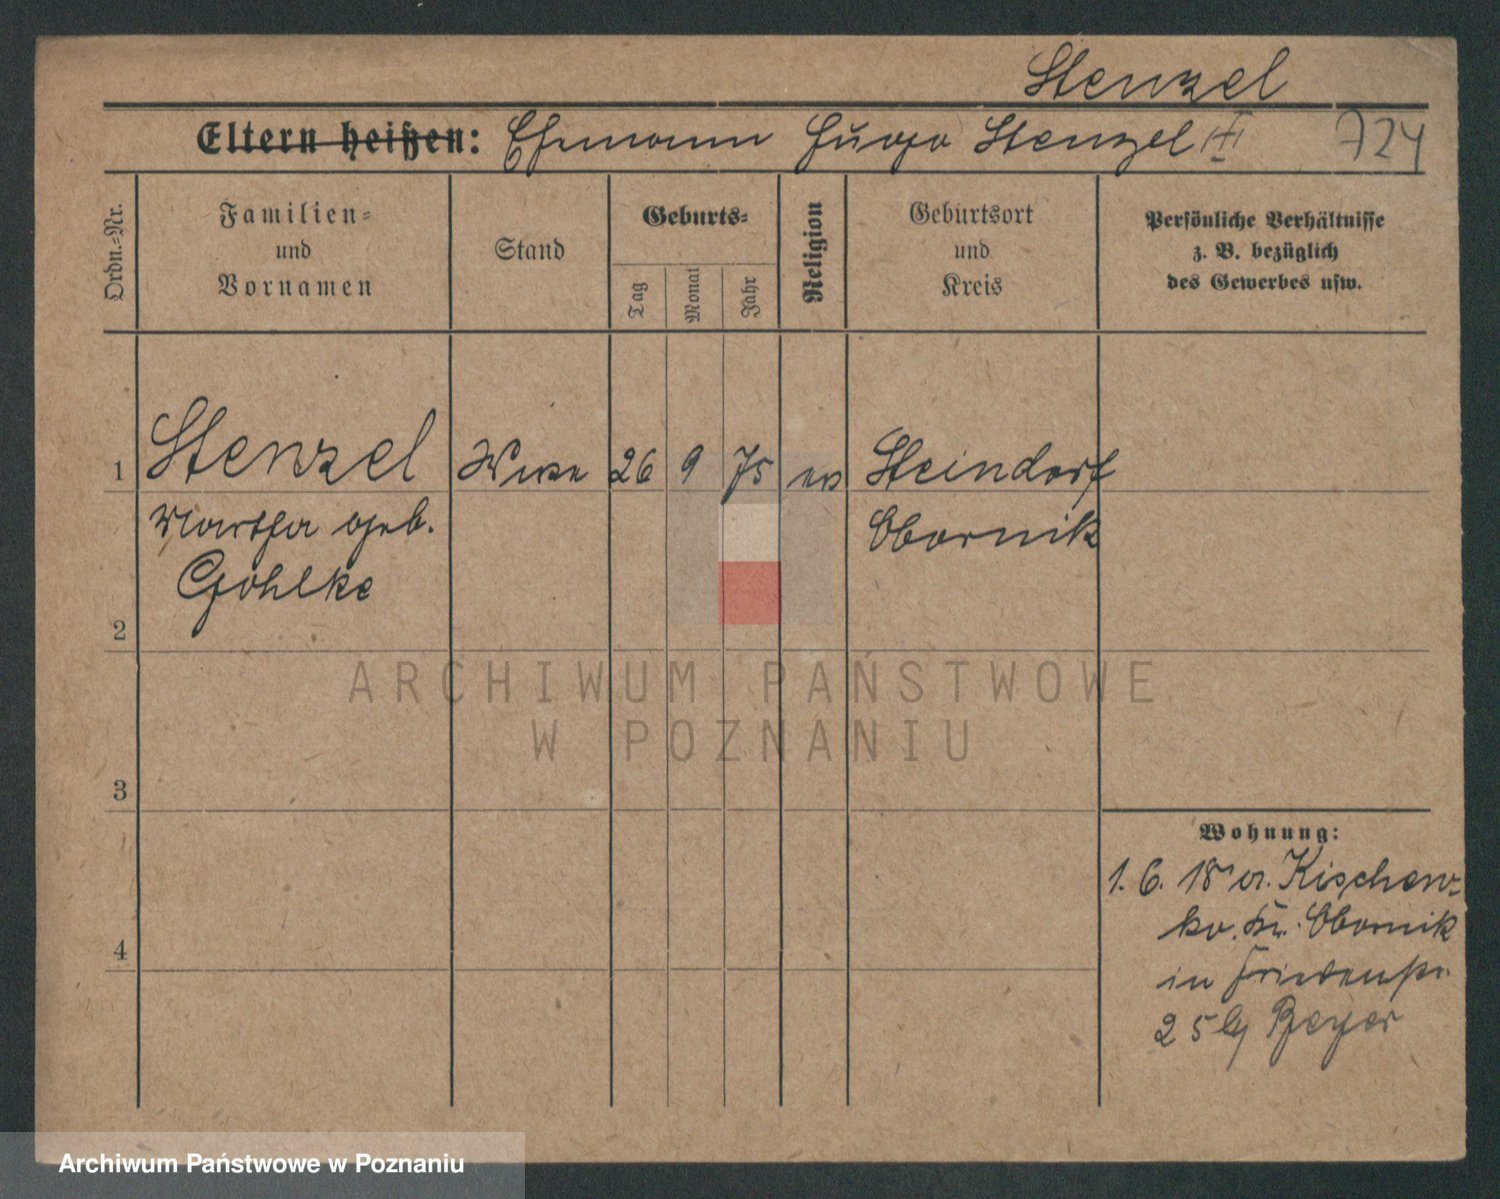 Stenzel
Eltern heißen: Ehemann Hugo Stenzel (†) 724
Ordn.-Nr.
Familien-
und
Vornamen
Stand
Geburts-
Tag
Monat
Jahr
Religion
Geburtsort
und
Kreis
Persönliche Verhältnisse
z. B. bezüglich
des Gewerbes usw.
1 Stenzel Wwe 26 9 75 ev Steindorf
Martha geb. Obornik
Gohlke
2
ARCHIWUM PAŃSTWOWE
W POZNANIU
3
4
Wohnung:
1. 6. 18 a. Kischew-
ko. Kr. Obornik
in Friedenstr.
25 bei Beyer
Archiwum Państwowe w Poznaniu